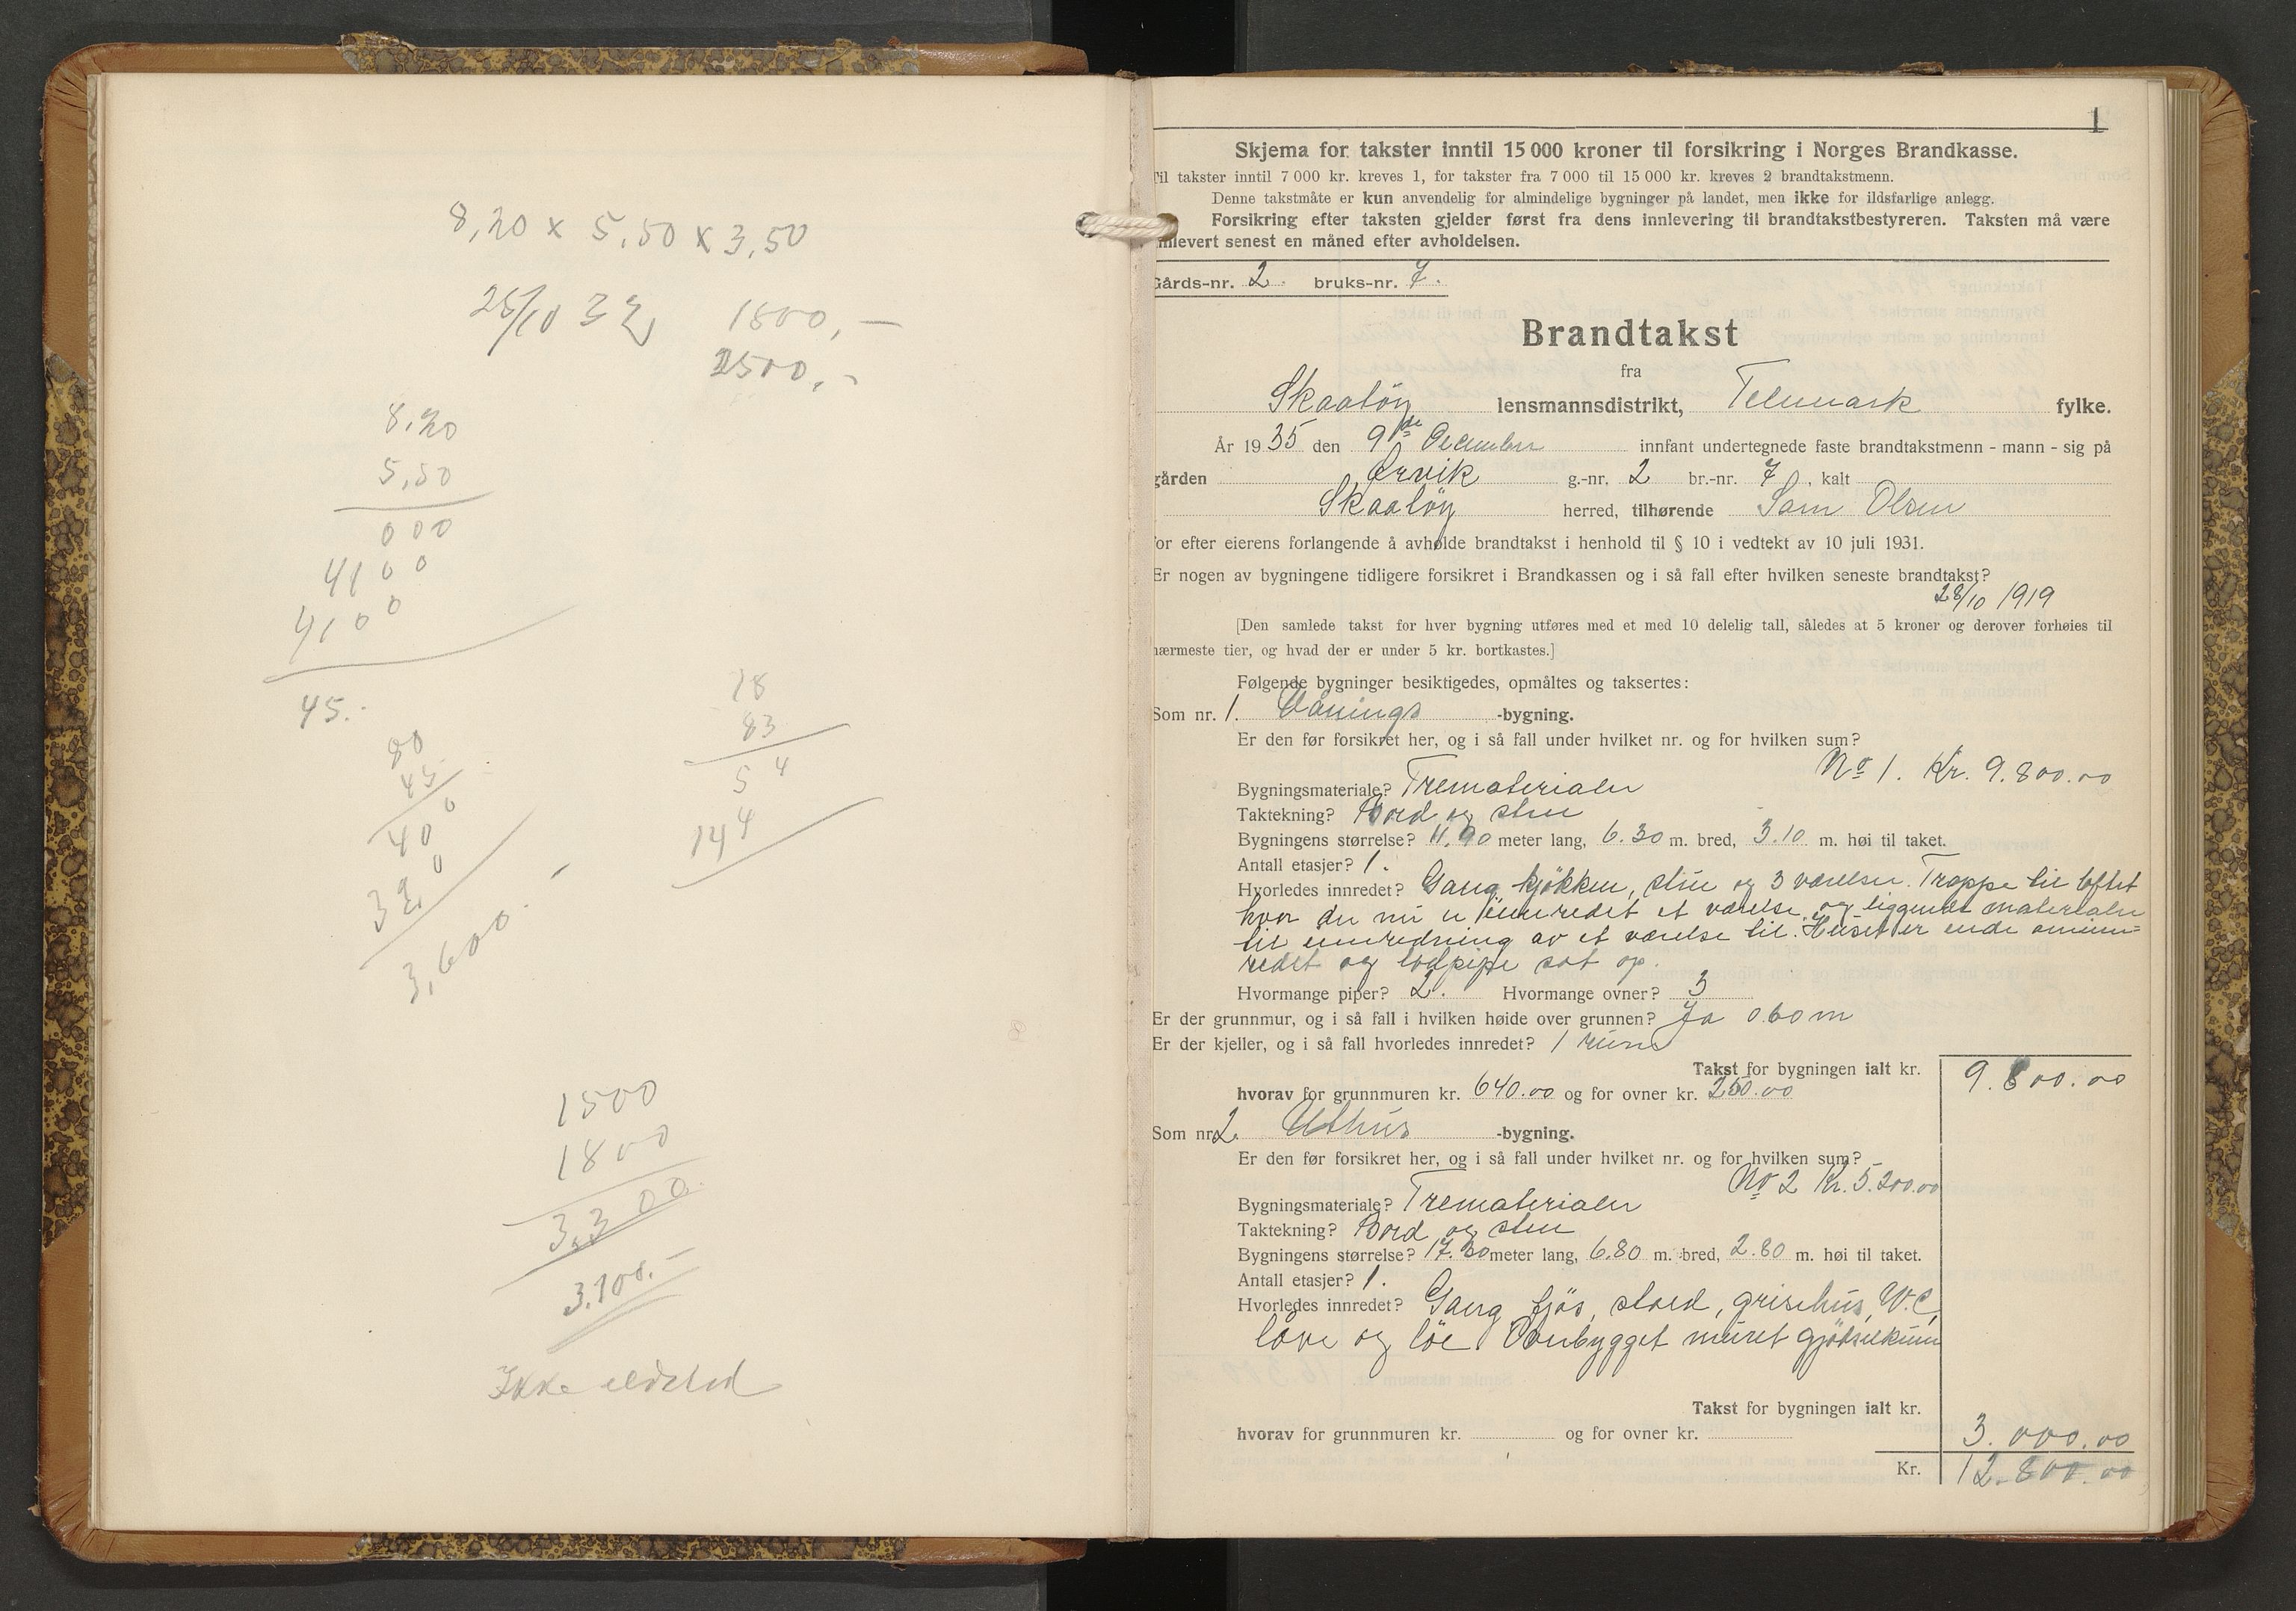 8,20 x 5,50 x 3,50
25/10 32 1800,-
2500,-
8,20
5,50
000
4100
4100
45.
80
45
400
320
3,600.-
18
83
54
144
1500
1800
3,300
3.100.-
Ikke ildsted
1
Skjema for takster inntil 15 000 kroner til forsikring i Norges Brandkasse.
Til takster inntil 7 000 kr. kreves 1, for takster fra 7 000 til 15 000 kr. kreves 2 brandtakstmenn.
Denne takstmåte er kun anvendelig for almindelige bygninger på landet, men ikke for ildsfarlige anlegg.
Forsikring efter taksten gjelder først fra dens innlevering til brandtakstbestyreren. Taksten må være
innlevert senest en måned efter avholdelsen.
Gårds-nr. 2. bruks-nr. 7.
Brandtakst
fra
Skaatöy lensmannsdistrikt, Telemark fylke.
År 1935 den 9de December innfant undertegnede faste brandtakstmenn - mann - sig på
gården Ørvik g.-nr. 2 br.-nr. 7, kalt
Skaatöy herred, tilhørende Sam Olsen
for efter eierens forlangende å avholde brandtakst i henhold til § 10 i vedtekt av 10 juli 1931.
Er nogen av bygningene tidligere forsikret i Brandkassen og i så fall efter hvilken seneste brandtakst?
28/10 1919
[Den samlede takst for hver bygning utføres med et med 10 delelig tall, således at 5 kroner og derover forhøies til
nærmeste tier, og hvad der er under 5 kr. bortkastes.]
Følgende bygninger besiktigedes, opmåltes og taksertes:
Som nr. 1. Vånings -bygning.
Er den før forsikret her, og i så fall under hvilket nr. og for hvilken sum?
No 1. Kr. 9.800.00
Bygningsmateriale? Trematerialer
Taktekning? Bord og sten
Bygningens størrelse? 11.90 meter lang, 6.30 m. bred, 3.10 m. høi til taket.
Antall etasjer? 1.
Hvorledes innredet? Gang kjökken, stue og 3 værelser. Trappe til loftet
hvor der nu er innredet et værelse og liggende materialer
til innredning av et værelse til. Huset er ende ominn=
redet og lodpipe sat op.
Hvormange piper? 2. Hvormange ovner? 3
Er der grunnmur, og i så fall i hvilken høide over grunnen? Ja 0.60 m
Er der kjeller, og i så fall hvorledes innredet? 1 rum
Takst for bygningen ialt kr. 9.800.00
hvorav for grunnmuren kr. 640.00 og for ovner kr. 250.00
Som nr. 2. Uthus -bygning.
Er den før forsikret her, og i så fall under hvilket nr. og for hvilken sum?
No 2 Kr. 5.200.00
Bygningsmateriale? Trematerialer
Taktekning? Bord og sten
Bygningens størrelse? 17.30 meter lang, 6.80 m. bred, 2.80 m. høi til taket.
Antall etasjer? 1.
Hvorledes innredet? Gang fjös, stald, grisehus, W.C,
låve og löe Ovenbygget muret gjödselkum
Takst for bygningen ialt kr.
hvorav for grunnmuren kr. og for ovner kr. 3.000.00
Kr. 12.800.00